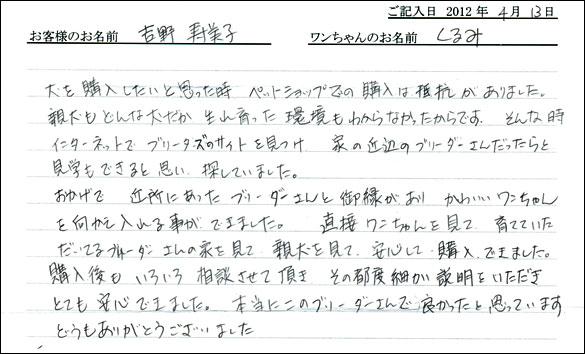 ご記入日 2012 年 4 月 13 日
お客様のお名前 吉野 寿美子 ワンちゃんのお名前 くるみ
犬を購入したいと思った時 ペットショップでの購入は抵抗がありました。
親犬もどんな犬だか 生れ育った環境もわからなかったからです。そんな時
インターネットでブリーダーズのサイトを見つけ 家の近辺のブリーダーさんだったらと
見学もできると思い 探していました。
おかげで 近所にあったブリーダーさんと御縁があり かわいいワンちゃん
を向かえ入れる事ができました。 直接ワンちゃんを見て 育てていた
だいてるブリーダーさんの家を見て 親犬を見て 安心して購入できました。
購入後も いろいろ 相談させて頂き その都度細かい説明をいただき
とても安心できました。本当にこのブリーダーさんで良かったと思っています
どうもありがとうございました